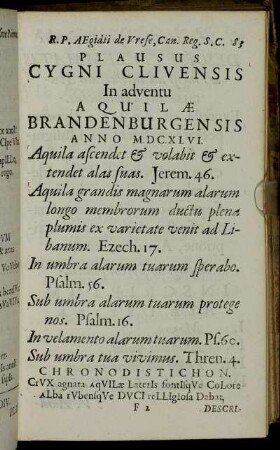 R. P. AEgidii de Vrese, Can. Reg. S. C. 85
PLAUSUS
CYGNI CLIVENSIS
In adventu
AQUILÆ
BRANDENBURGENSIS
ANNO MDC.XLVI.
Aquila ascendet & volabit & ex-
tendet alas suas. Jerem. 46.
Aquila grandis magnarum alarum
longo membrorum ductu plena
plumis ex varietate venit ad Li-
banum. Ezech. 17.
In umbra alarum tuarum sperabo.
Psalm. 56.
Sub umbra alarum tuarum protege
nos. Psalm. 16.
In velamento alarum tuarum. Ps. 60.
Sub umbra tua vivimus. Thren. 4.
CHRONODISTICHON.
CrVX agnata AqVILæ LaterIs fontIsqVe CoLore
ALba rVbensqVe DVCI reLLIgIosa Dabit,
F 2 DESCRI-